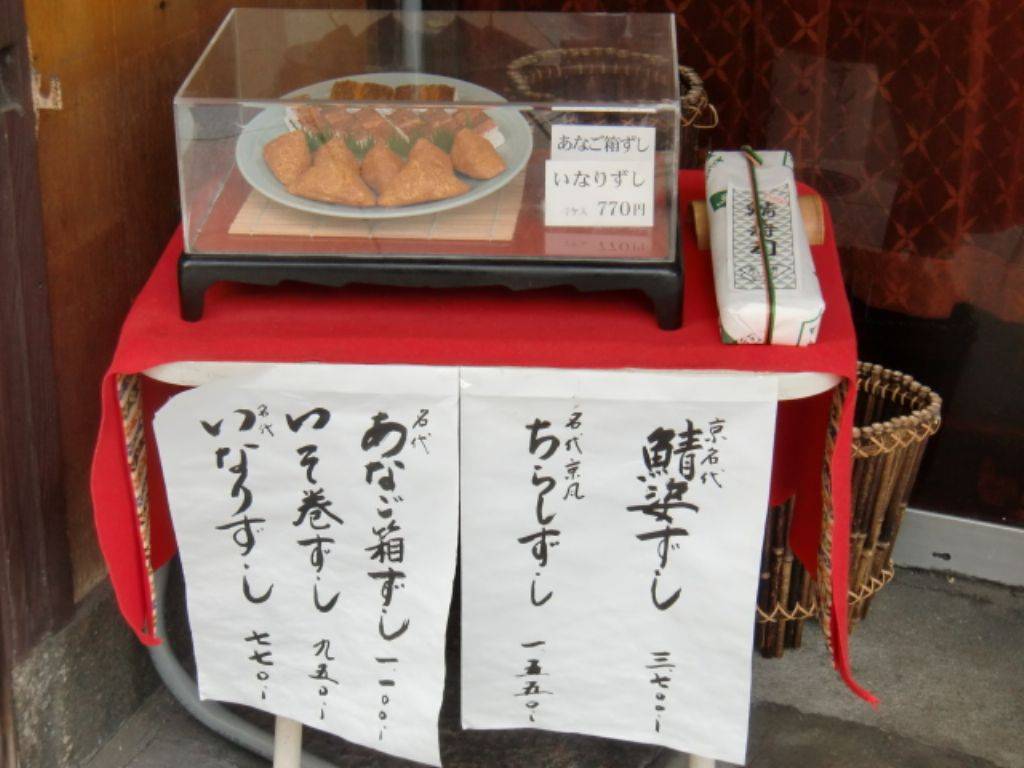 あなご箱ずし
いなりずし
770円
京名代
鯖姿ずし
三、七〇〇、
名代京風
ちらしずし
一五五〇、
名代
あなご箱ずし
一、一〇〇、
いそ巻ずし
九五〇、
名代
いなりずし
七七〇、